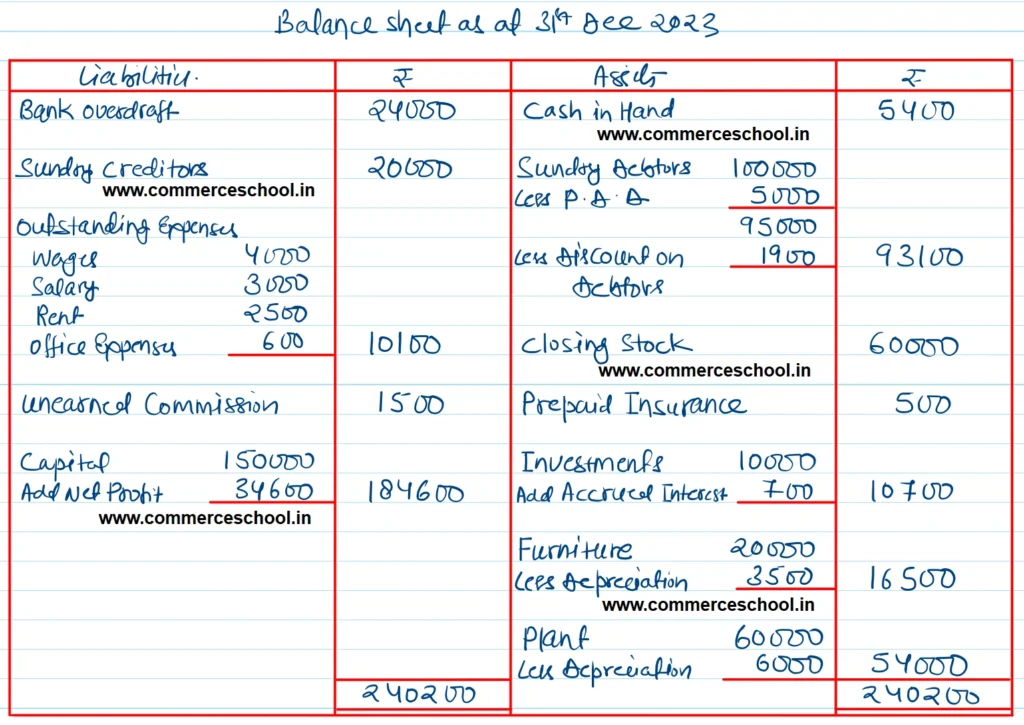 Balance sheet as at 31st Dec 2023
Liabilities. ₹ Assets ₹
Bank overdraft 24000 Cash in Hand 5400
www.commerceschool.in
Sundry Creditors 20000 Sundry Debtors 100000
www.commerceschool.in Less P.D.D 5000
Outstanding Expenses 95000
Wages 4000 Less Discount on 1900 93100
Salary 3000 Debtors
Rent 2500
Office Expenses 600 10100 Closing Stock 60000
www.commerceschool.in
Unearned Commission 1500 Prepaid Insurance 500
Capital 150000 Investments 10000
Add Net Profit 34600 184600 Add Accrued Interest 700 10700
www.commerceschool.in
Furniture 20000
Less Depreciation 3500 16500
www.commerceschool.in
Plant 60000
Less Depreciation 6000 54000
240200 240200